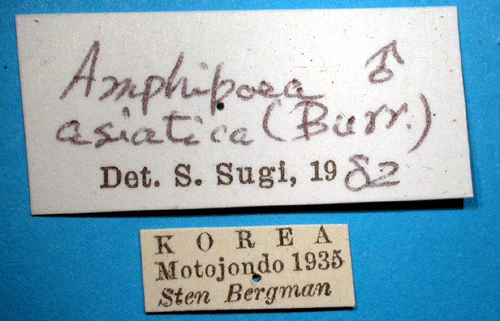 Amphipoea ♂
asiatica (Burr.)
Det. S. Sugi, 1982
KOREA
Motojondo 1935
Sten Bergman